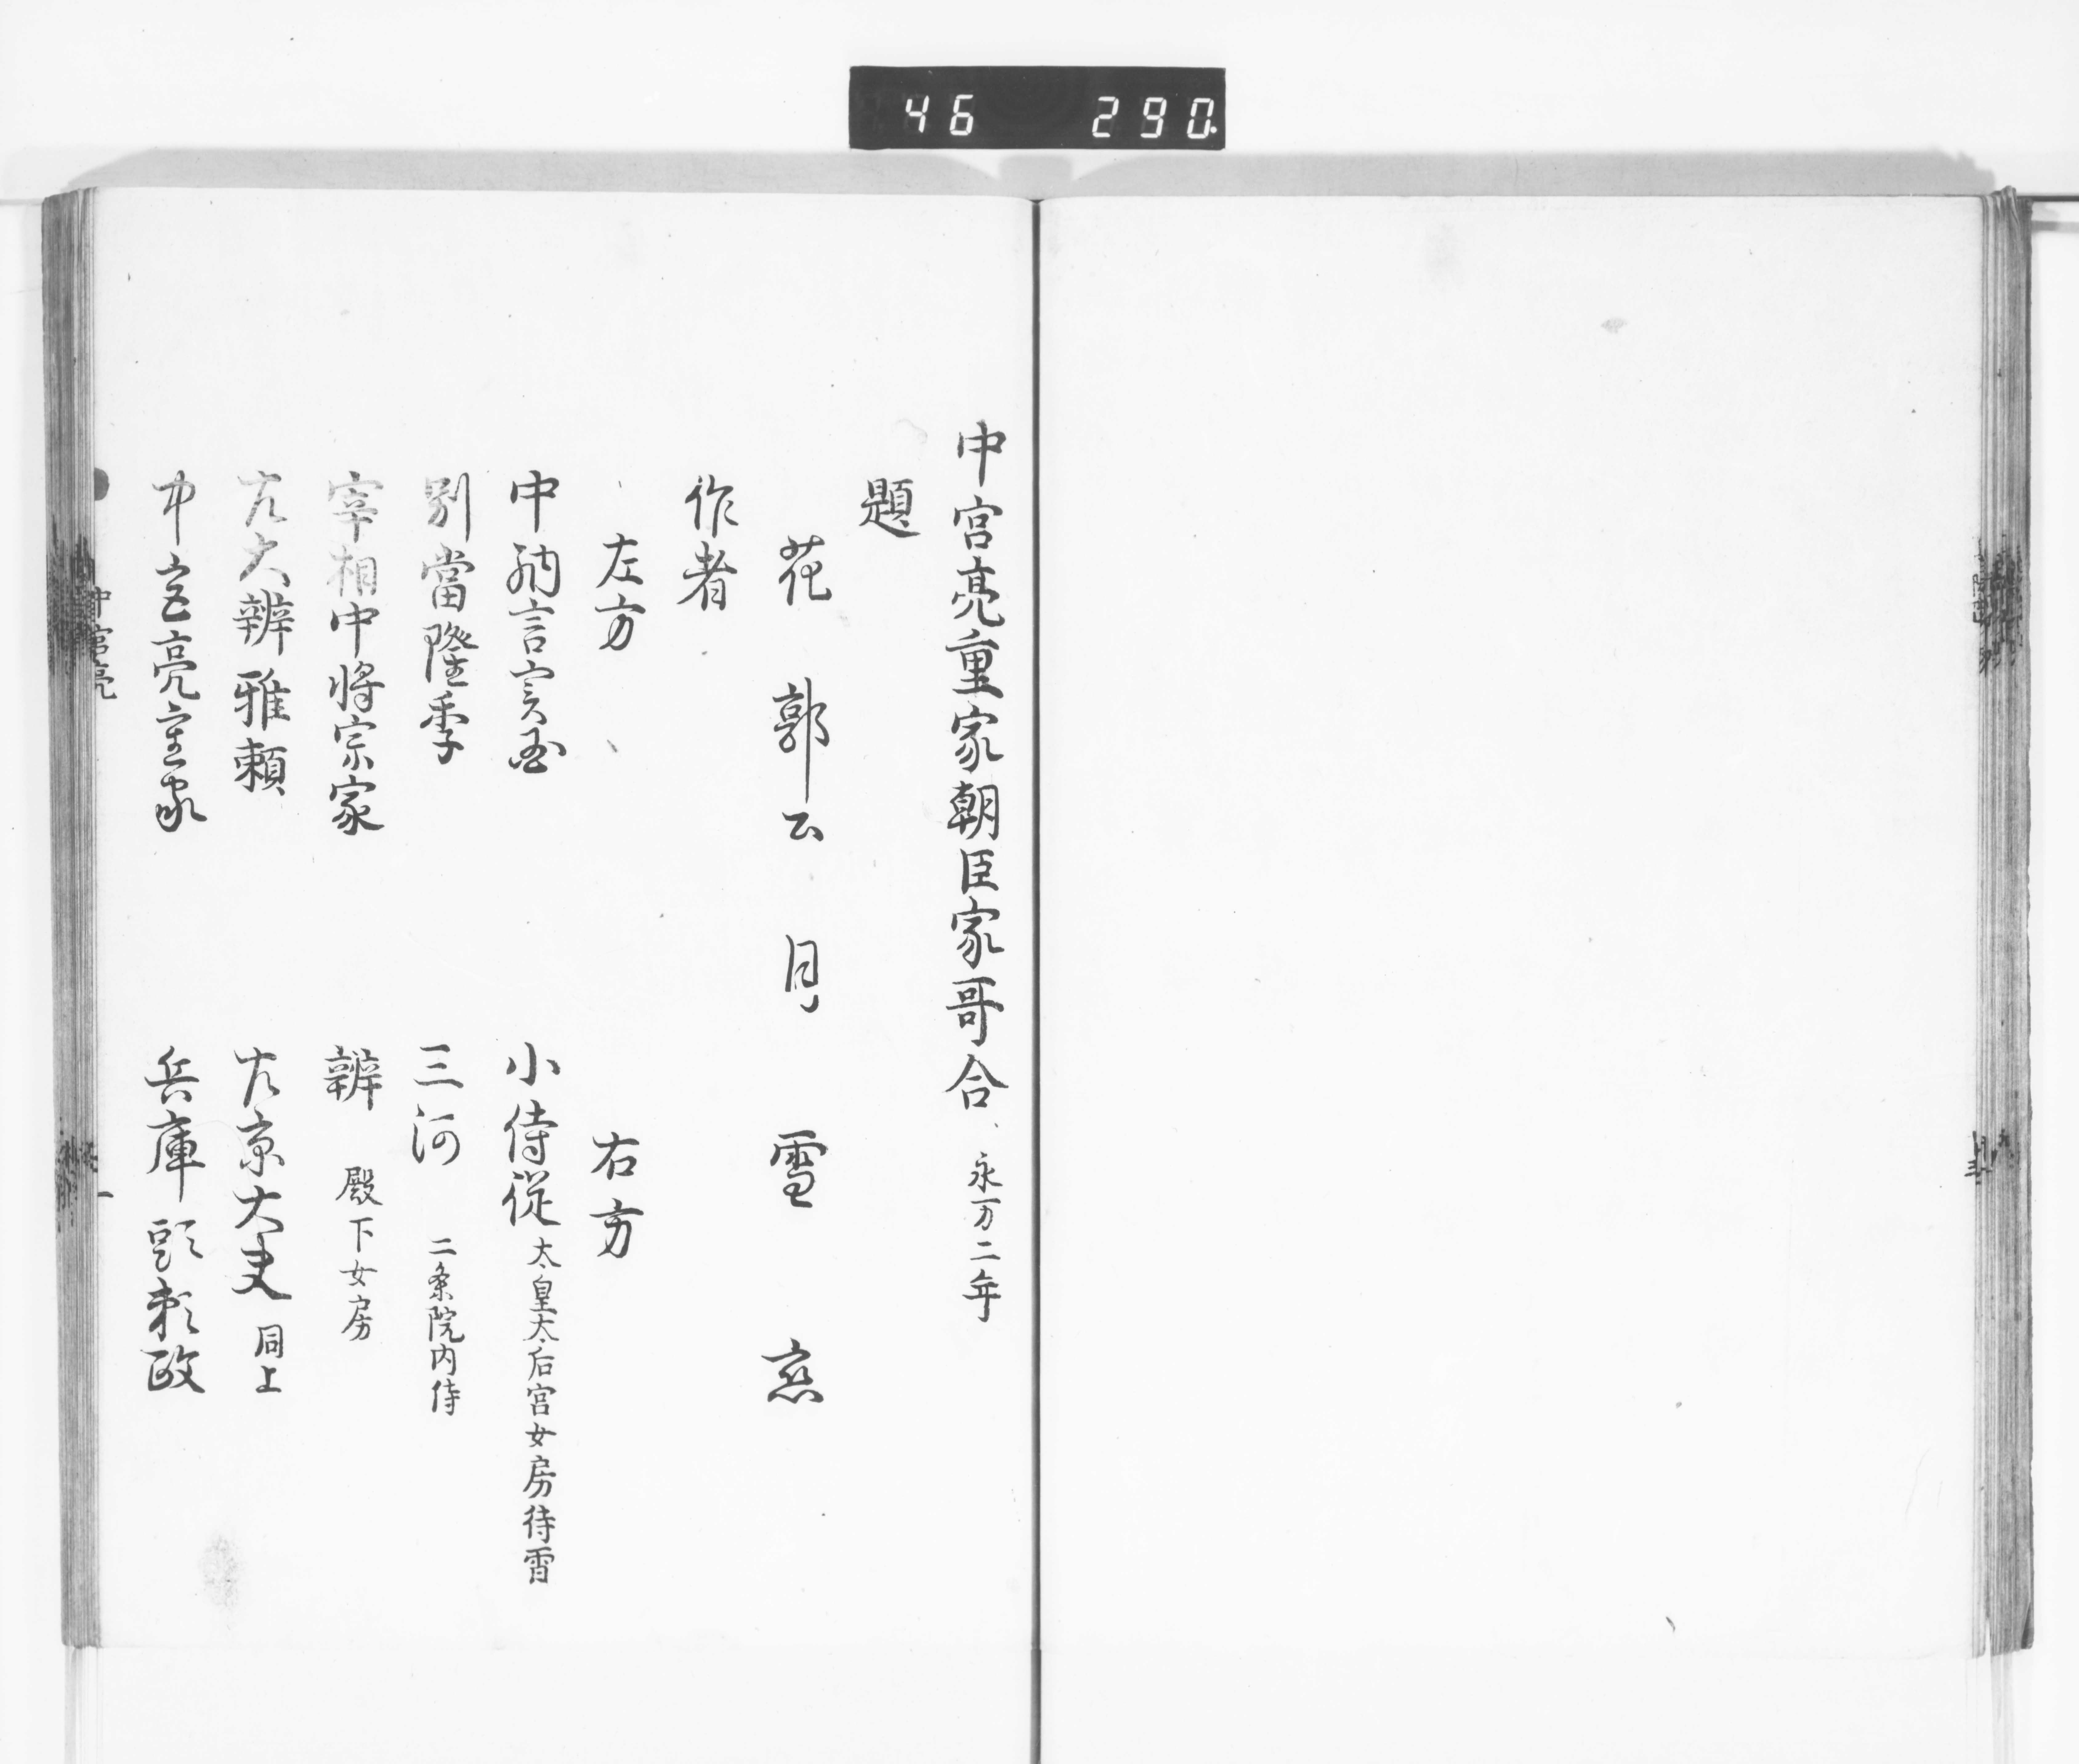 46 290
中宮亮重家朝臣家哥合 永万二年
題
花 郭公 月 雪 恋
作者
左方 右方
中納言実国 小侍従 太皇太后宮女房待宵
別當隆季 三河 二条院内侍
宰相中将宗家 辨 殿下女房
左大辨雅頼 左京大夫 同上
中宮亮重家 兵庫頭頼政
中宮亮
一